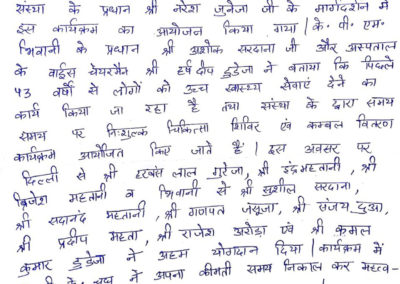 संस्था के प्रधान श्री नरेश जुनेजा जी के मार्गदर्शन में
इस कार्यक्रम का आयोजन किया गया | के० वी० एम०
भिवानी के प्रधान श्री अशोक सरदाना जी और अस्पताल
के वाईस चेयरमैन श्री हर्ष दीप डुडेजा ने बताया कि पिछले
43 वर्षो से लोगों को उच्च स्वास्थ्य सेवाएं देने का
कार्य किया जा रहा है तथा संस्था के द्वारा समय
समय पर निःशुल्क चिकित्सा शिविर एवं कम्बल वितरण
कार्यक्रम आयोजित किए जाते हैं | इस अवसर पर
दिल्ली से श्री हरबंस लाल गुरेजा, श्री इंद्र महतानी, श्री
ब्रिजेश महतानी व भिवानी से श्री सुशील सरदाना,
श्री सदानंद महतानी, श्री गणपत जंसूजा, श्री संजय दुआ,
श्री प्रदीप महता, श्री राजेश अरोड़ा एवं श्री कमल
कुमार डुडेजा ने अहम योगदान दिया | कार्यक्रम में
ने अपना कीमती समय निकाल कर महत्व-